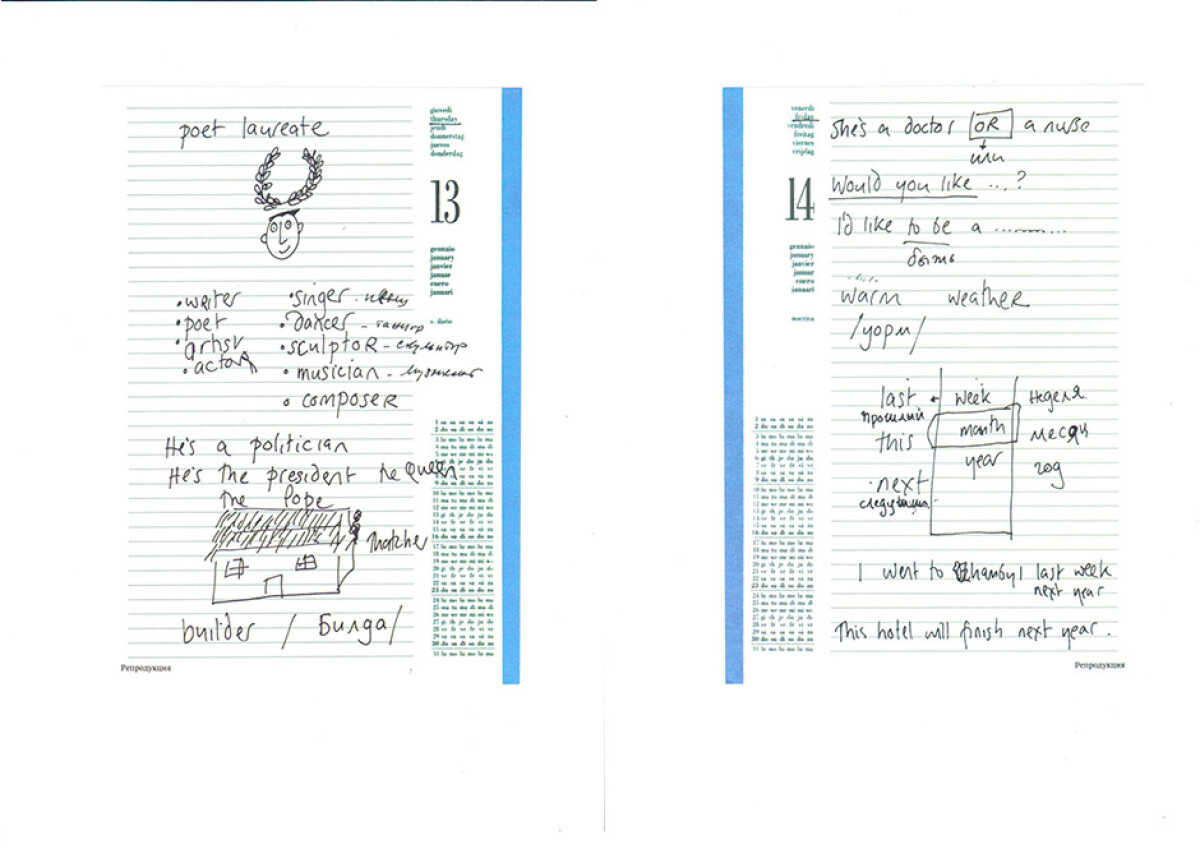 poet laureate
giovedì
thursday
jeudi
donnerstag
jueves
donderdag
13
gennaio
january
janvier
januar
enero
januari
s. ilario
• writer
• poet
• artist
• actor
• singer - певец
• dancer - танцор
• sculptor - скульптор
• musician - музыкант
• composer
He's a politician
He's the president the Queen
the Pope
thatcher
builder / Билда/
Репродукция
venerdì
friday
vendredi
freitag
viernes
vrijdag
14
gennaio
january
janvier
januar
enero
januari
martina
She's a doctor OR a nurse
или
Would you like ...?
I'd like to be a ..........
быть
warm weather
/уорм/
last week неделя
прошлый
this month месяц
year год
next
I went to last week
next year
This hotel will finish next year.
Репродукция